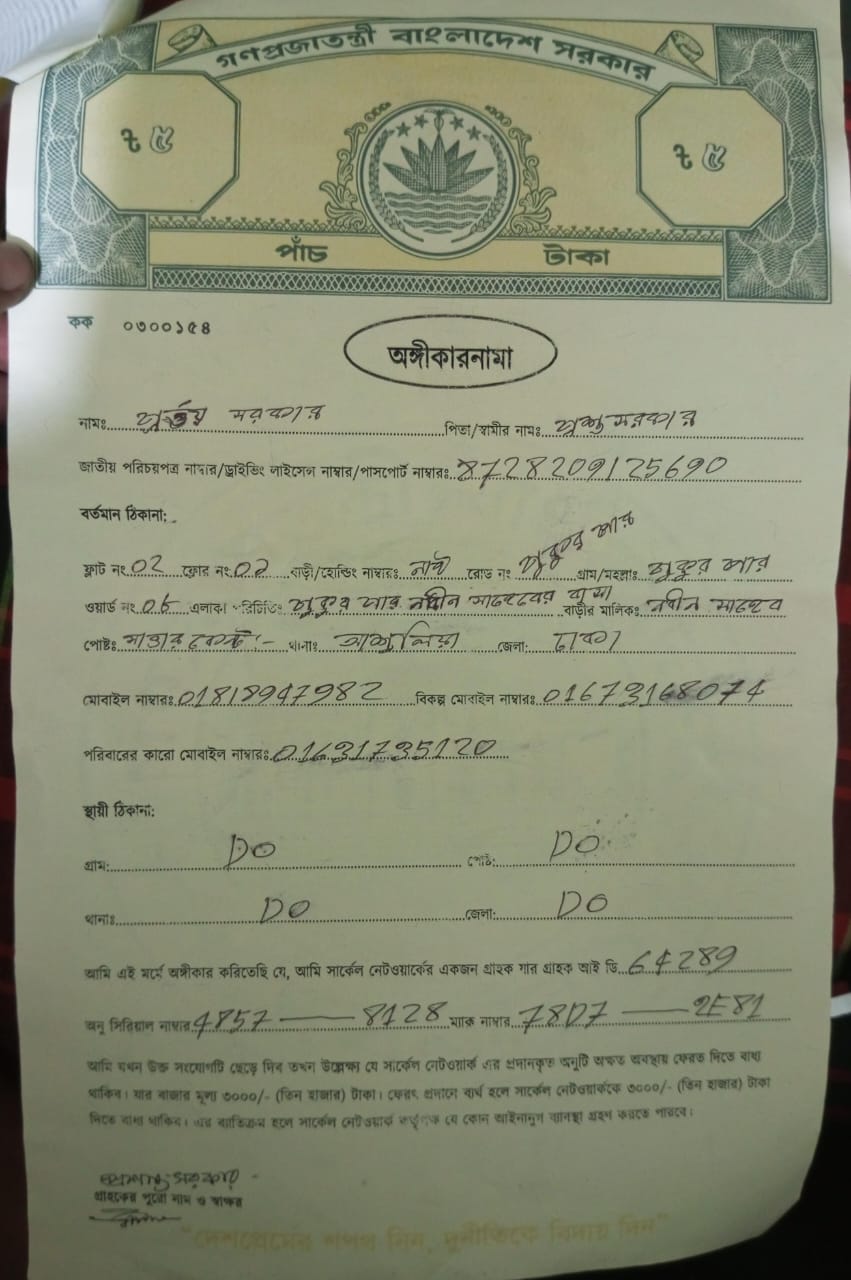 গণপ্রজাতন্ত্রী বাংলাদেশ সরকার
৳ ৫ ৳ ৫
পাঁচ টাকা
কক ০৩০০১৫৪
অঙ্গীকারনামা
নামঃ সরকার পিতা/স্বামীর নামঃ সরকার
জাতীয় পরিচয়পত্র নাম্বার/ড্রাইভিং লাইসেন্স নাম্বার/পাসপোর্ট নাম্বারঃ 8728209125690
বর্তমান ঠিকানা:
ফ্লাট নং 02 ফ্লোর নং 02 বাড়ী/হোল্ডিং নাম্বারঃ নাই রোড নং পুকুর পার গ্রাম/মহল্লাঃ পুকুর পার
ওয়ার্ড নং 06 এলাকা পরিচিতিঃ পুকুর পার নবীন সাহেবের বাসা বাড়ীর মালিকঃ নবীন সাহেব
পোষ্টঃ সাভার কেন্ট:- থানাঃ আশুলিয়া জেলা: ঢাকা
মোবাইল নাম্বারঃ 01818947982 বিকল্প মোবাইল নাম্বারঃ 01673168074
পরিবারের কারো মোবাইল নাম্বারঃ 01631735120
স্থায়ী ঠিকানা:
গ্রাম: DO পোষ্ট: DO
থানাঃ DO জেলা: DO
আমি এই মর্মে অঙ্গীকার করিতেছি যে, আমি সার্কেল নেটওয়ার্কের একজন গ্রাহক যার গ্রাহক আই ডি 64289
অনু সিরিয়াল নাম্বার 4857 — 8128 ম্যাক নাম্বার 78D7 — 2E81
আমি যখন উক্ত সংযোগটি ছেড়ে দিব তখন উল্লেক্ষ্য যে সার্কেল নেটওয়ার্ক এর প্রদানকৃত অনুটি অক্ষত অবস্থায় ফেরত দিতে বাধ্য
থাকিব। যার বাজার মূল্য ৩০০০/- (তিন হাজার) টাকা। ফেরৎ প্রদানে ব্যর্থ হলে সার্কেল নেটওয়ার্ককে ৩০০০/- (তিন হাজার) টাকা
দিতে বাধ্য থাকিব। এর ব্যতিক্রম হলে সার্কেল নেটওয়ার্ক কর্তৃপক্ষ যে কোন আইনানুগ ব্যবস্থা গ্রহণ করতে পারবে।
সরকার
গ্রাহকের পুরো নাম ও স্বাক্ষর
"দেশপ্রেমের শপথ নিন, দুর্নীতিকে বিদায় দিন"